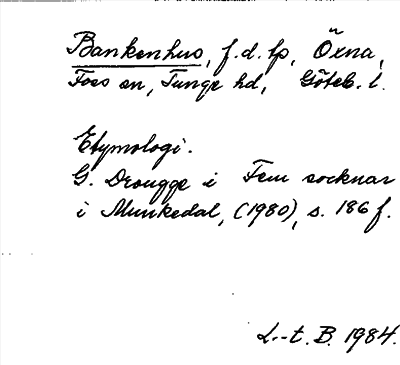 Bankenhus, f.d. lp, Öxna,
Foss sn, Tunge hd, Göteb. l.
Etymologi.
G. Drougge i Fem socknar
i Munkedal, (1980), s. 186 f.
L.-t. B. 1984.